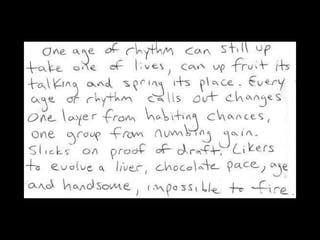 One age of rhythm can still up
take one of lives, can up fruit its
talking and spring its place. Every
age of rhythm calls out changes
One layer from habiting chances,
one group from numbing gain.
Slicks on proof of draft. Likers
to evolve a liver, chocolate pace, age
and handsome, impossible to fire.